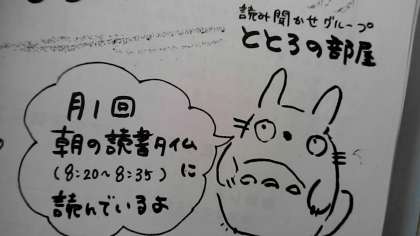 読み聞かせグループ
ととろの部屋
月1回
朝の読書タイム
(8:20~8:35)に
読んでいるよ